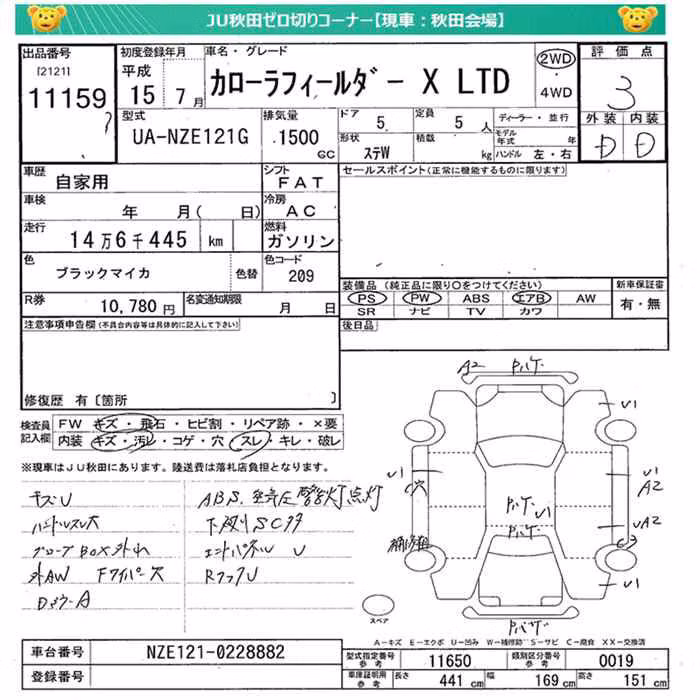 JU秋田ゼロ切りコーナー【現車：秋田会場】
出品番号 初度登録年月 車名・グレード 評価点
[2121] 平成 カローラフィールダー X LTD 2WD 3
11159 15 7月 ・4WD 外装 内装
型式 排気量 ドア 5 定員 5人 ディーラー・並行 D D
UA-NZE121G 1500 CC 形状 ステW 積載 kg モデル年式 年
ハンドル 左・右
車歴 自家用 シフト FAT セールスポイント(正常に機能するものに限ります)
車検 年 月( 日) 冷房 AC
走行 14万6千445 km 燃料 ガソリン
色 ブラックマイカ 色替 色コード 209
装備品 (純正品に限り○をつけてください) 新車保証書
PS PW ABS エアB AW 有・無
R券 10,780円 名変通知期限 月 日 SR ナビ TV カワ
注意事項申告欄(不具合内容等は具体的に記入して下さい) 後日品
修復歴 有〔箇所 〕
検査員記入欄 FW キズ・飛石・ヒビ割・リペア跡・×要
内装 キズ・汚レ・コゲ・穴・スレ・キレ・破レ
※現車はJU秋田にあります。陸送費は落札店負担となります。
キズU ABS、空気圧警告灯点灯
ハンドルスレ大 下廻りSCサ
グローブBOX外れ エンドパネル U
外AW Fワイパー欠 RフックU
DミラーA
A2
U1
U1
C穴
U1
A2
U1
UA2
U1
スペア
A−キズ E−エクボ U−凹み W−補修跡 S−サビ C−腐食 XX−交換済
車台番号 NZE121-0228882 型式指定番号 参考 11650 類別区分番号 参考 0019
登録番号 車庫証明用 参考 長さ 441 cm 幅 169 cm 高さ 151 cm